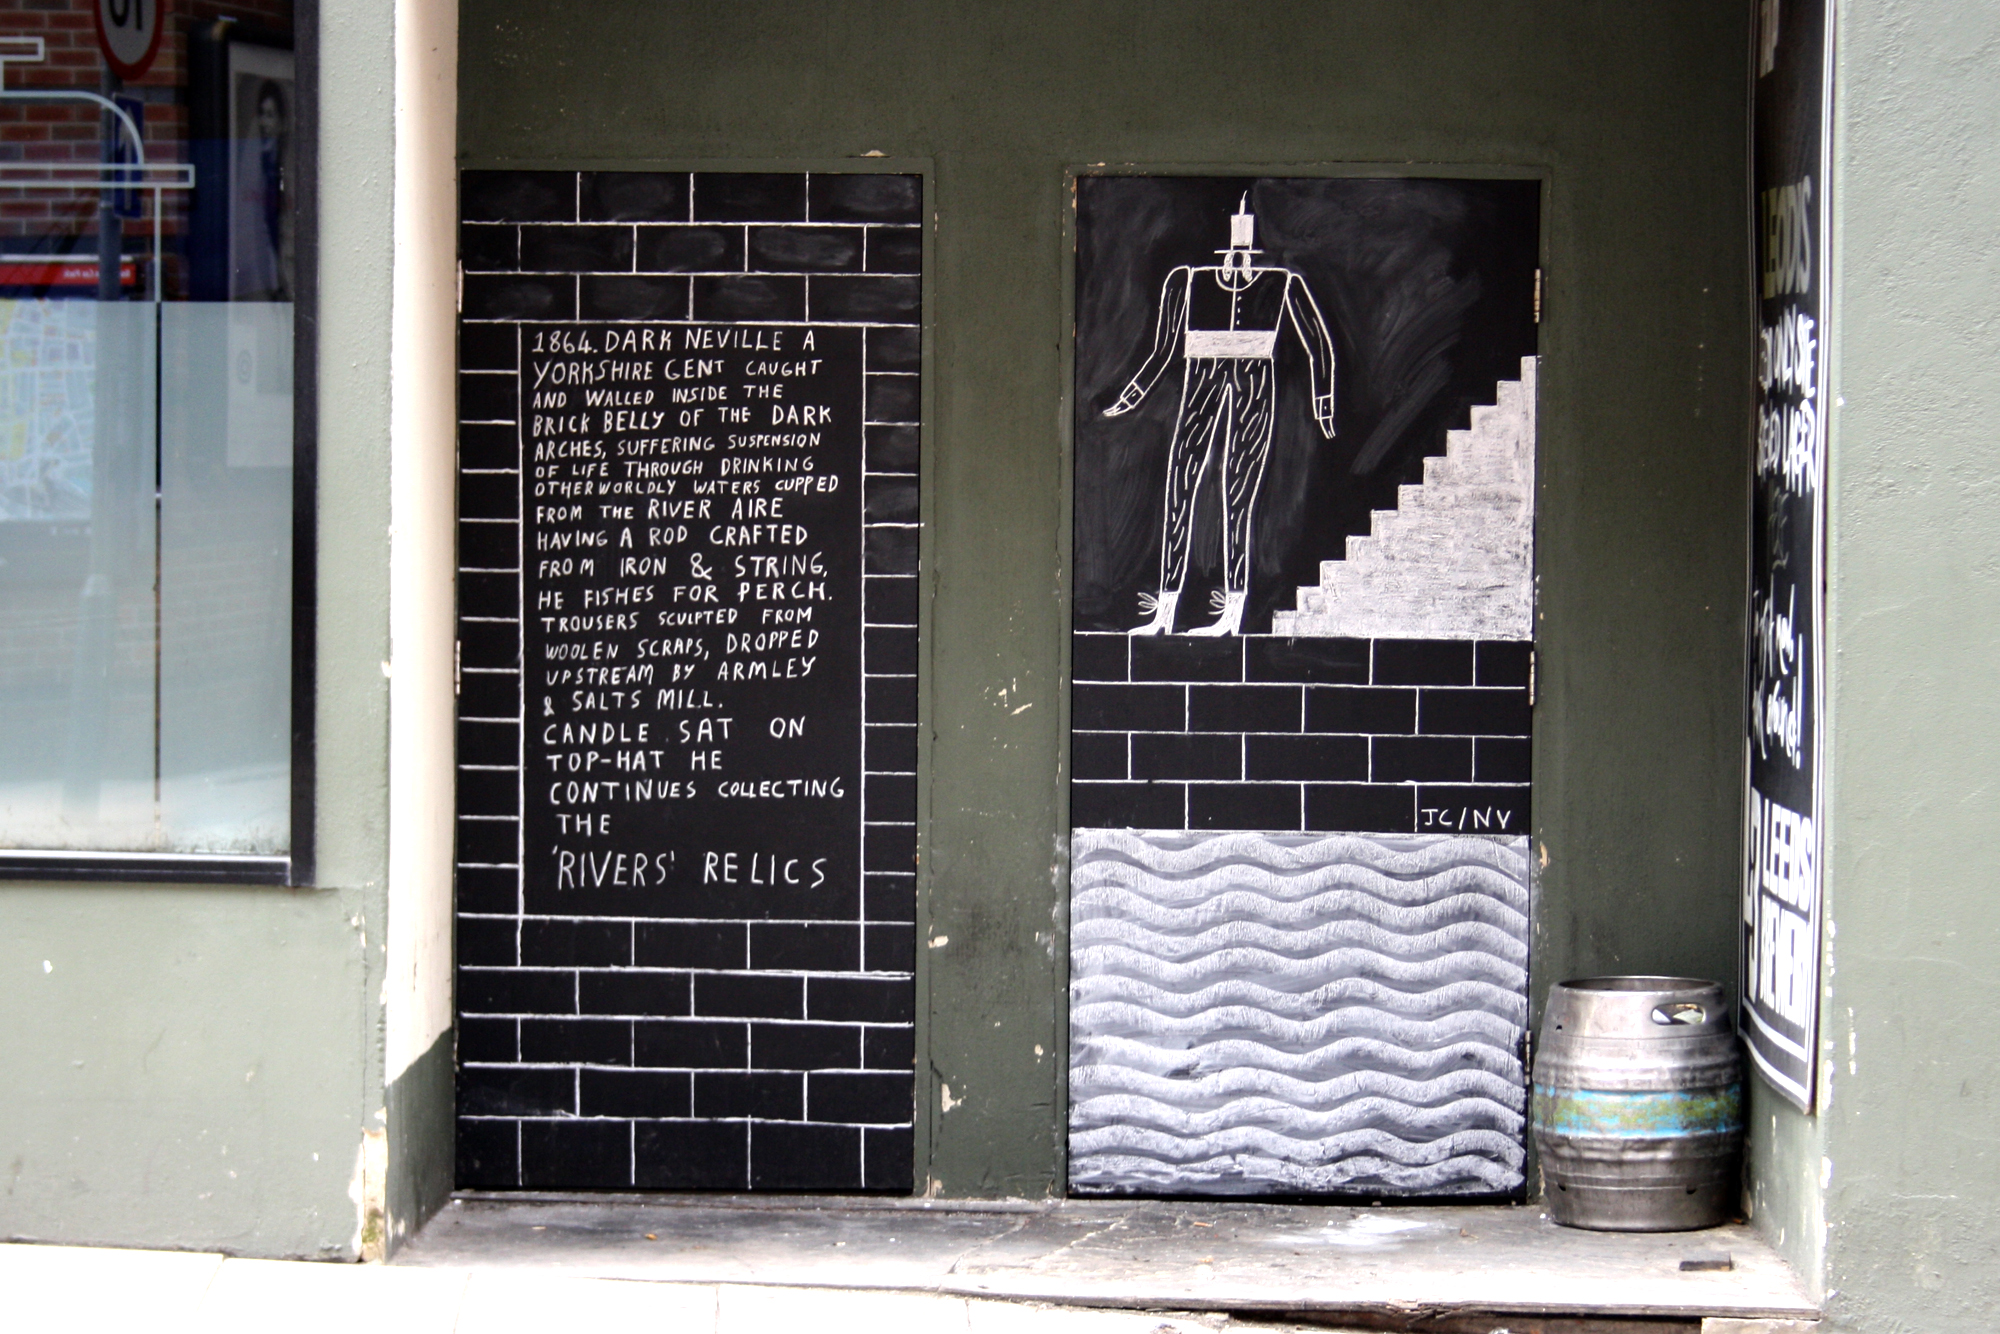 1864. DARK NEVILLE A
YORKSHIRE GENT CAUGHT
AND WALLED INSIDE THE
BRICK BELLY OF THE DARK
ARCHES, SUFFERING SUSPENSION
OF LIFE THROUGH DRINKING
OTHERWORLDLY WATERS CUPPED
FROM THE RIVER AIRE
HAVING A ROD CRAFTED
FROM IRON & STRING,
HE FISHES FOR PERCH.
TROUSERS SCULPTED FROM
WOOLEN SCRAPS, DROPPED
UPSTREAM BY ARMLEY
& SALTS MILL.
CANDLE SAT ON
TOP-HAT HE
CONTINUES COLLECTING
THE
'RIVERS' RELICS
JC/NV
LEODIS
LEEDS